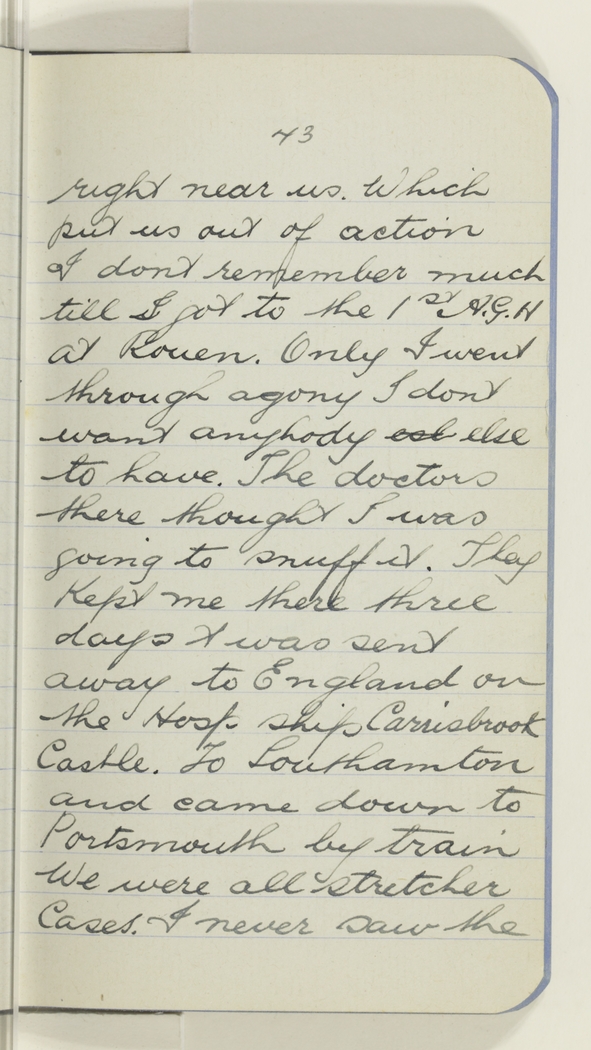 43
right near us. Which
put us out of action
I dont remember much
till I got to the 1st A.G.H
at Rouen. Only I went
through agony I dont
want anybody else
to have. The doctors
there thought I was
going to snuff it. They
Kept me there three
days & was sent
away to England on
the Hosp ship Carrisbrook
Castle. To Southamton
and came down to
Portsmouth by train
We were all stretcher
Cases. I never saw the